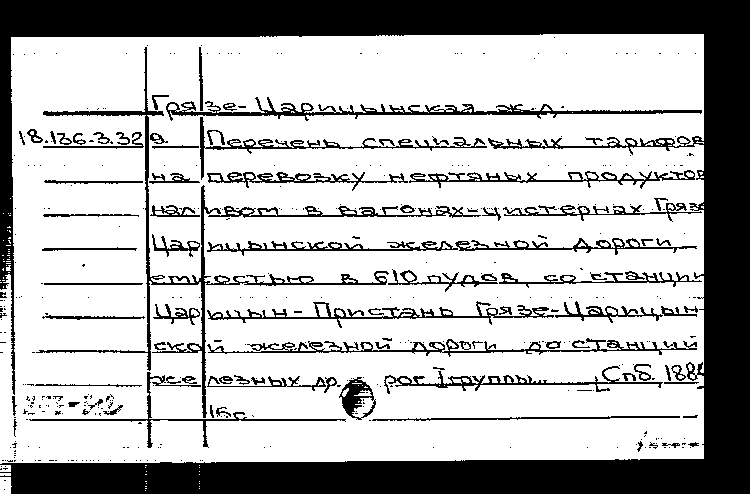 Грязе-Царицынская ж.д.
18.136.3.329 Перечень специальных тарифов
на перевозку нефтяных продуктов
наливом в вагонах-цистернах Грязе
Царицынской железной дороги,
емкостью в 610 пудов, со станции
Царицын-Пристань Грязе-Царицын-
ской железной дороги до станций
железных дорог I группы... Спб.
16с.